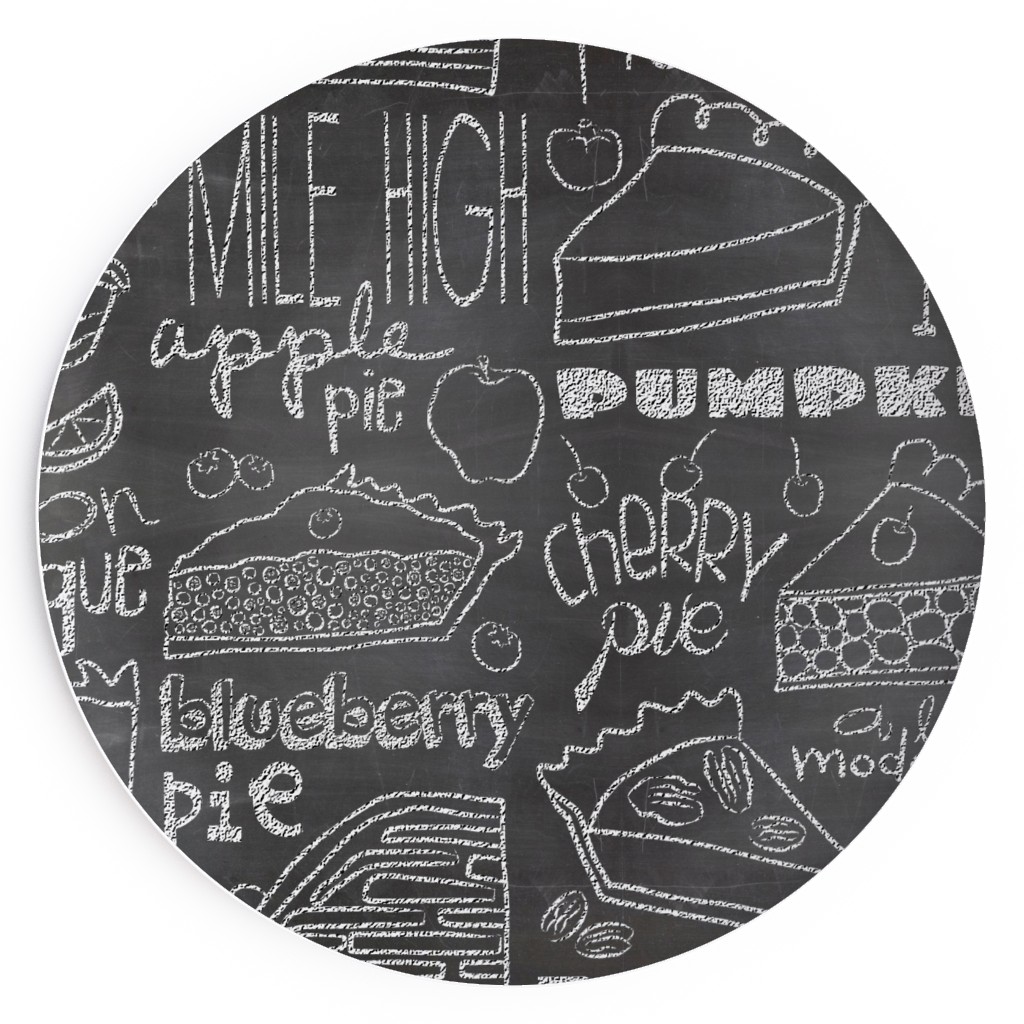 MILE HIGH
apple
pie
PUMPK
cherry
pie
blueberry
pie